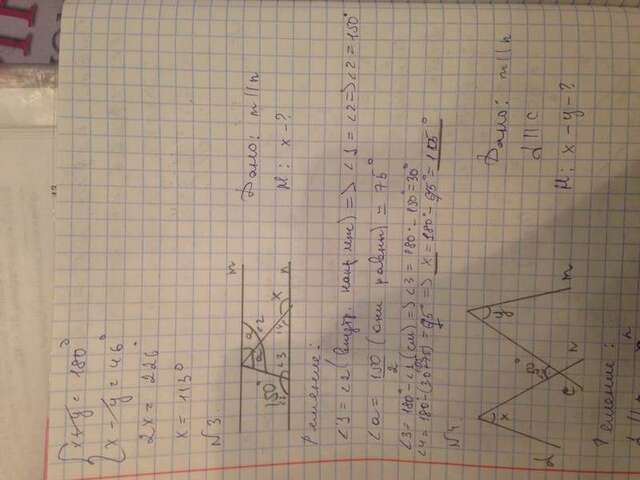 x+y = 180°
x-y = 46°
2x = 226°
x = 113°
№3.
m
a
a
∠2
150°
∠1
∠3
∠4
x
n
Дано: m||n
Н: x-?
Решение:
∠1 = ∠2 (внутр. накр леж) => ∠1 = ∠2 => ∠2 = 150°
∠a = 150/2 (они равны) = 75°
∠3 = 180° - ∠1 (см) => ∠3 = 180° - 150° = 30°
∠4 = 180° - (30+75) = 75° => x = 180° - 75° = 105°
№4.
x
y
L
C
n
m
Дано: m||n
L||C
Н: x-y-?
Решение: